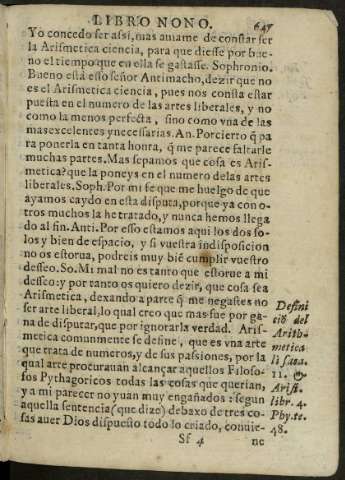 LIBRO NONO.
647
Yo concedo ser assi, mas auiame de constar ser
la Arismetica ciencia, para que diesse por bue-
no el tiempo que en ella se gastasse. Sophronio.
Bueno està esso señor Antimacho, dezir que no
es el Arismetica ciencia, pues nos consta estar
puesta en el numero de las artes liberales, y no
como la menos perfecta, sino como vna de las
mas excelentes y necessarias. An. Por cierto q̃ pa
ra ponerla en tanta honra, q̃ me parece faltarle
muchas partes. Mas sepamos que cosa es Aris-
metica? que la poneys en el numero delas artes
liberales. Soph. Por mi fe que me huelgo de que
ayamos caydo en esta disputa, porque ya con o-
tros muchos la he tratado, y nunca hemos llega
do al fin. Anti. Por esso estamos aqui los dos so-
los y bien de espacio, y si vuestra indisposicion
no os estorua, podreis muy biẽ cumplir vuestro
desseo. So. Mi mal no es tanto que estorue a mi
desseo: y por tanto os quiero dezir, que cosa sea
Arismetica, dexando a parte q̃ me negastes no
ser arte liberal, lo qual creo que mas fue por ga-
na de disputar, que por ignorar la verdad. Aris-
metica comunmente se define, que es vna arte
que trata de numeros, y de sus passiones, por la
qual arte procurauan alcançar aquellos Filoso-
fos Pythagoricos todas las cosas que querian,
y a mi parecer no yuan muy engañados: segun
aquella sentencia (que dize) debaxo de tres co-
sas auer Dios dispuesto todo lo criado, conuie-
Sf 4
ne
Defini
ciõ del
Arith
metica
11.
Arist.
libr. 4.
Phy. te.
48.